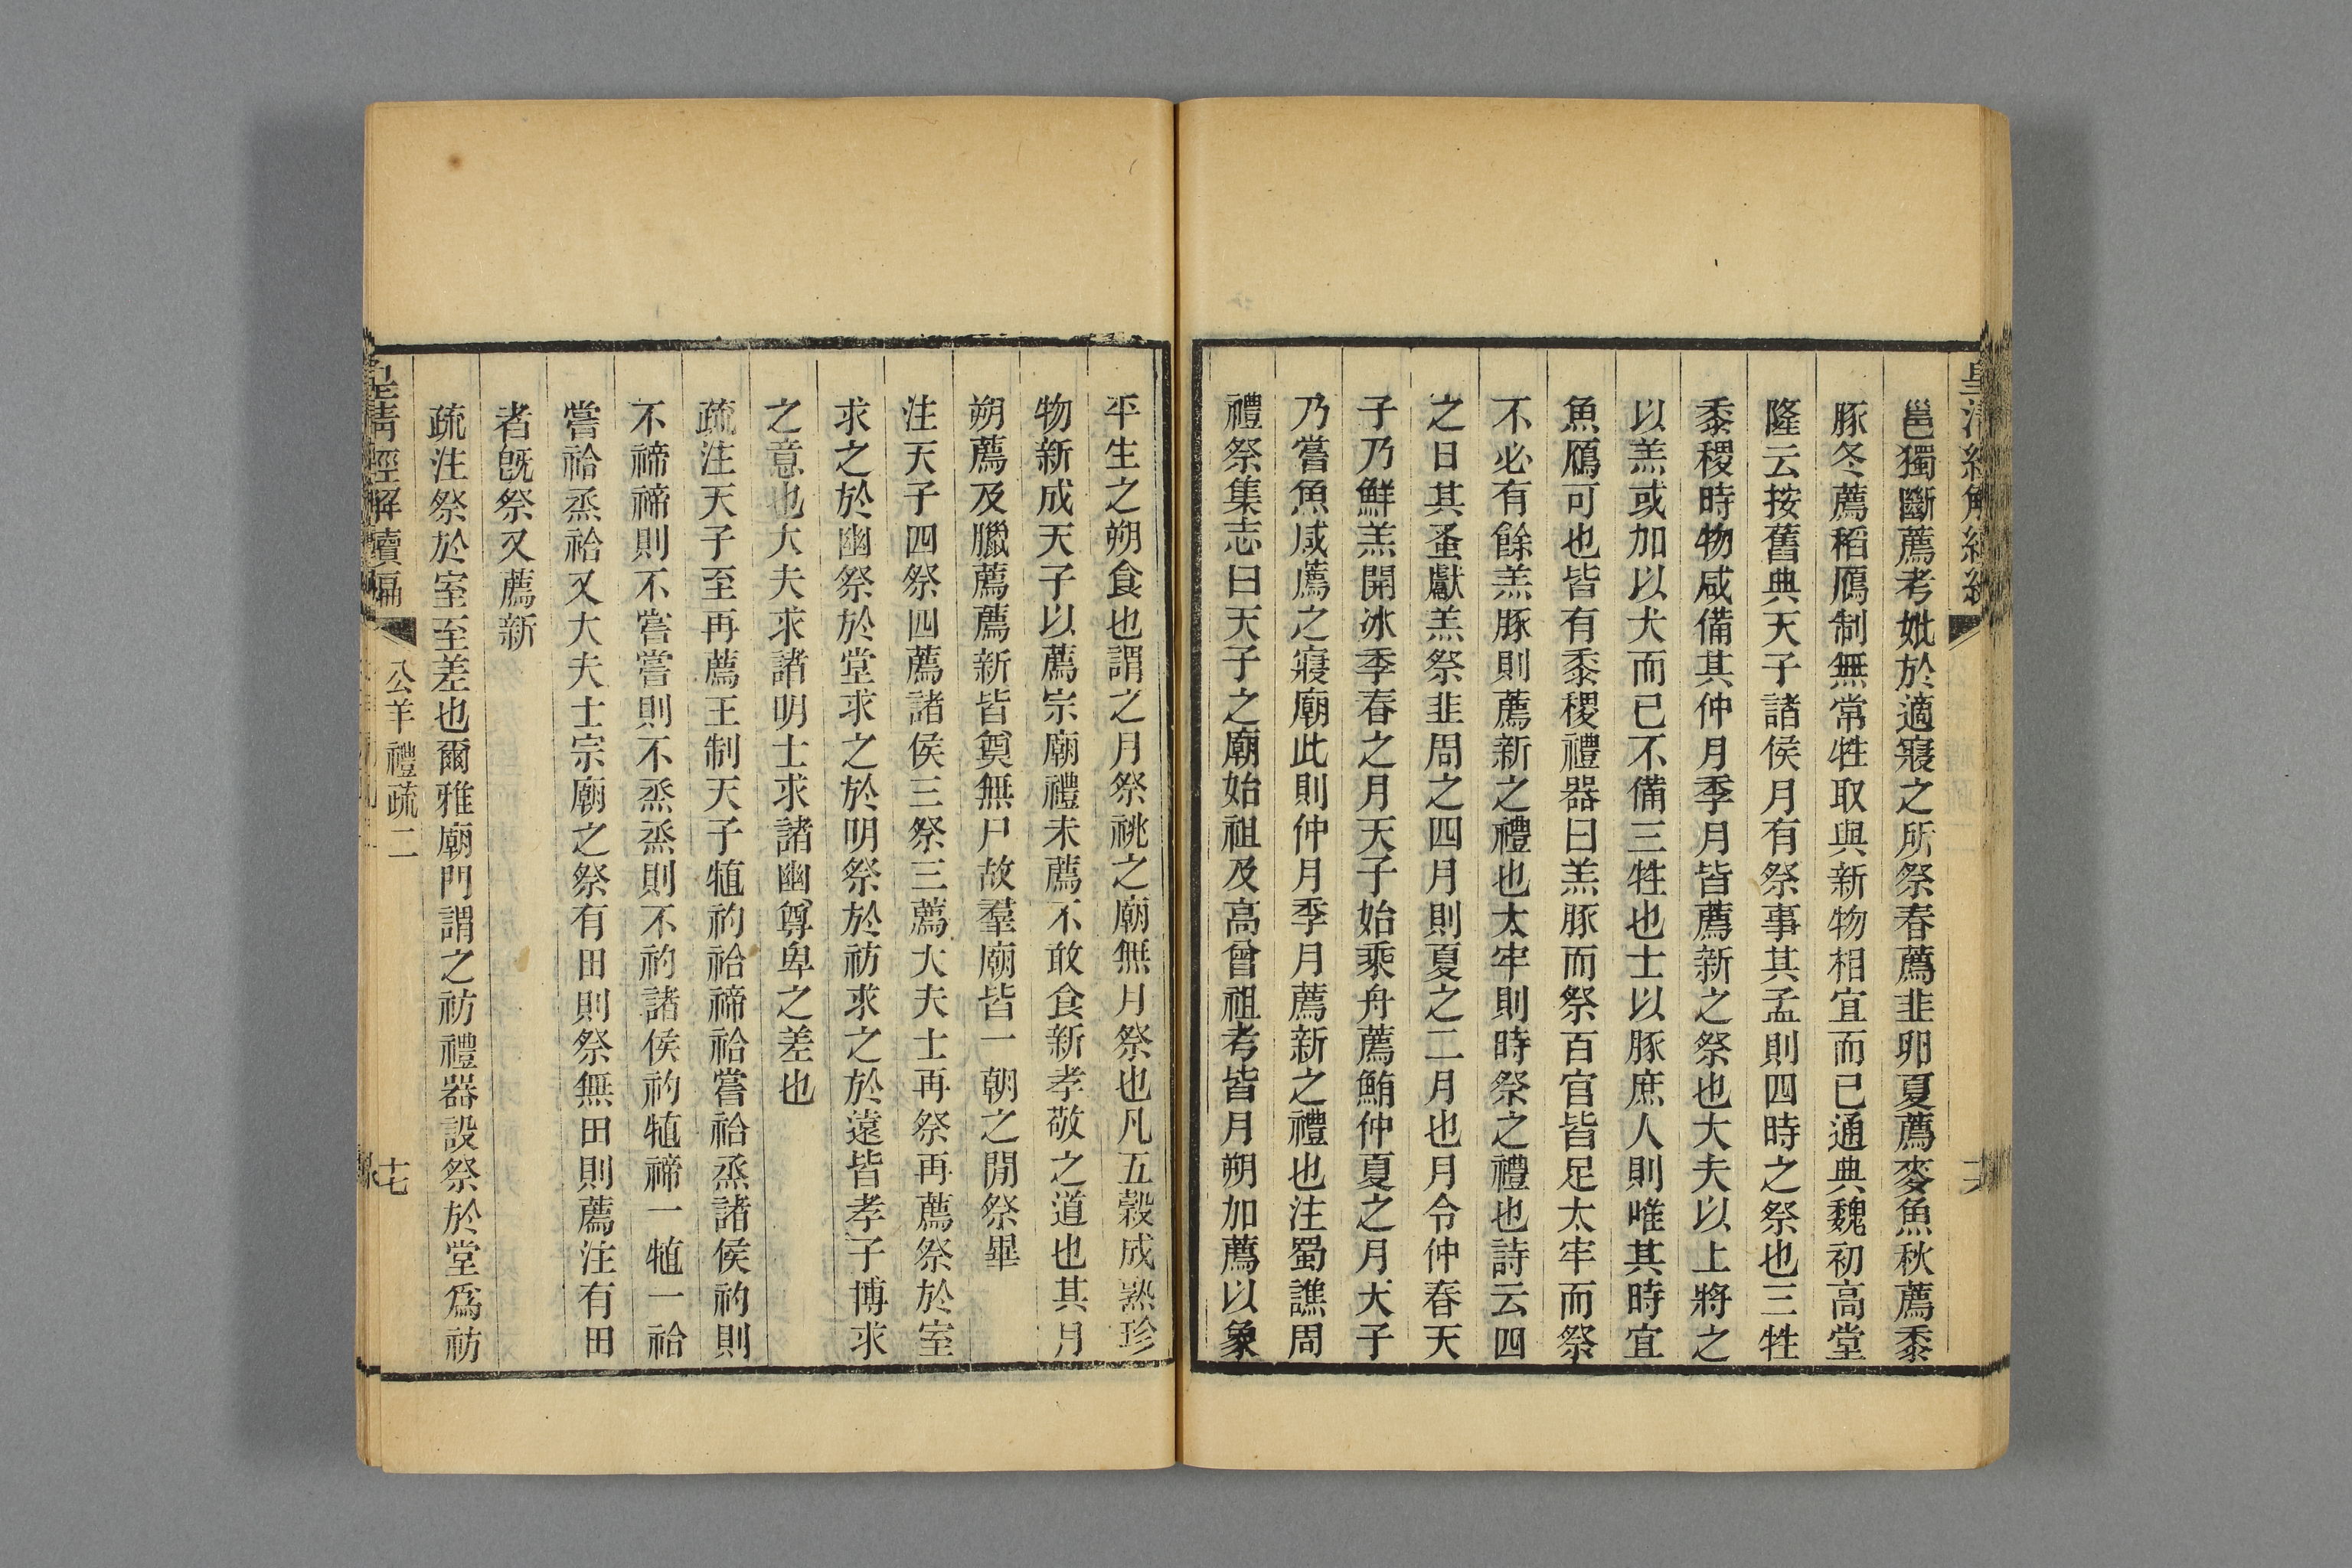 邕獨斷薦考妣於適寢之所祭春薦韭卵夏薦麥魚秋薦黍
豚冬薦稻鴈制無常牲取與新物相宜而已通典魏初高堂
隆云按舊典天子諸侯月有祭事其孟則四時之祭也三牲
黍稷時物咸備其仲月季月皆薦新之祭也大夫以上將之
以羔或加以犬而已不備三牲也士以豚庶人則唯其時宜
魚鴈可也皆有黍稷禮器曰羔豚而祭百官皆足太牢而祭
不必有餘羔豚則薦新之禮也太牢則時祭之禮也詩云四
之日其蚤獻羔祭韭周之四月則夏之二月也月令仲春天
子乃鮮羔開冰季春之月天子始乘舟薦鮪仲夏之月天子
乃嘗魚咸薦之寢廟此則仲月季月薦新之禮也注蜀譙周
禮祭集志曰天子之廟始祖及高曾祖考皆月朔加薦以象
平生之朔食也謂之月祭祧之廟無月祭也凡五穀成熟珍
物新成天子以薦宗廟禮未薦不敢食新孝敬之道也其月
朔薦及臘薦薦新皆奠無尸故羣廟皆一朝之閒祭畢
注天子四祭四薦諸侯三祭三薦大夫士再祭再薦祭於室
求之於幽祭於堂求之於明祭於祊求之於遠皆孝子博求
之意也大夫求諸明士求諸幽尊卑之差也
疏注天子至再薦王制天子犆礿祫禘祫嘗祫烝諸侯礿則
不禘禘則不嘗嘗則不烝烝則不礿諸侯礿犆禘一犆一祫
嘗祫烝祫又大夫士宗廟之祭有田則祭無田則薦注有田
者旣祭又薦新
疏注祭於室至差也爾雅廟門謂之祊禮器設祭於堂爲祊
皇清經解續編
公羊禮疏二
十七